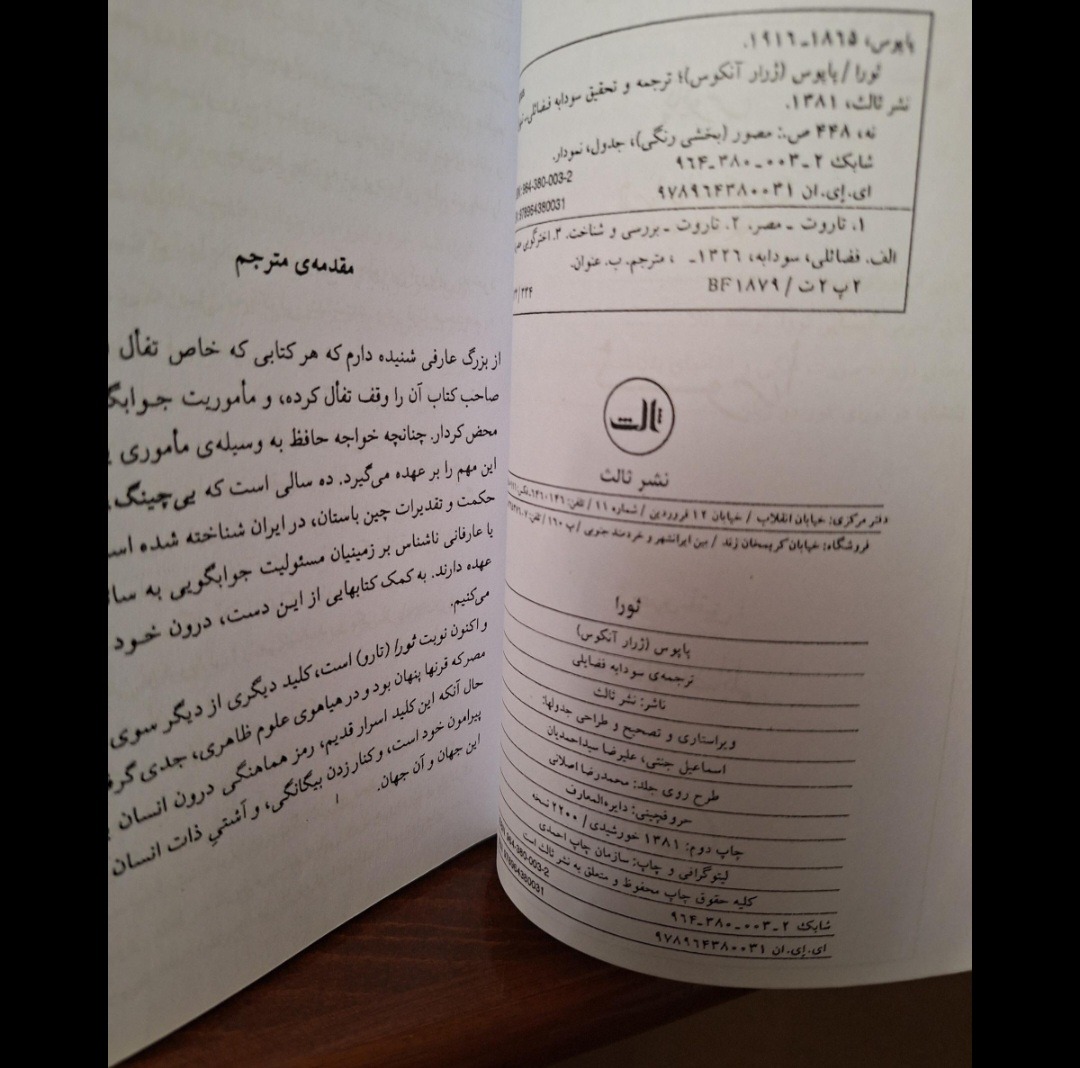 پاپوس، ۱۸۶۵-۱۹۱۶.
ثورا / پاپوس (ژرار آنکوس)؛ ترجمه و تحقیق سودابه فضائلی.
نشر ثالث، ۱۳۸۱.
نه، ۴۴۸ ص.: مصور (بخشی رنگی)، جدول، نمودار.
شابک ۲-۰۰۳-۳۸۰-۹۶۴
964-380-003-2
ای.اِی.ان ۹۷۸۹۶۴۳۸۰۰۳۱
978964380031
۱. تاروت - مصر. ۲. تاروت - بررسی و شناخت. ۳. اخترگویی
الف. فضائلی، سودابه، ۱۳۲۶- ، مترجم. ب. عنوان.
۲ پ ۲ ت / BF ۱۸۷۹
ثالث
نشر ثالث
دفتر مرکزی: خیابان انقلاب / خیابان ۱۲ فروردین / شماره ۱۱ / تلفن: ۶۴۶۰۱۴۶
فروشگاه: خیابان کریمخان زند / بین ایرانشهر و خردمند جنوبی / پ ۱۶۰ / تلفن:
ثورا
پاپوس (ژرار آنکوس)
ترجمه‌ی سودابه فضایلی
ناشر: نشر ثالث
ویراستاری و تصحیح و طراحی جدولها:
اسماعیل جنتی، علیرضا سیداحمدیان
طرح روی جلد: محمدرضا اصلانی
حروفچینی: دایره‌المعارف
چاپ دوم: ۱۳۸۱ خورشیدی / ۲۲۰۰ نسخه
لیتوگرافی و چاپ: سازمان چاپ احمدی
کلیه حقوق چاپ محفوظ و متعلق به نشر ثالث است
964-380-003-2
978964380031
شابک ۲-۰۰۳-۳۸۰-۹۶۴
ای.اِی.ان ۹۷۸۹۶۴۳۸۰۰۳۱
مقدمه‌ی مترجم
از بزرگ عارفی شنیده دارم که هر کتابی که خاص تفأل
صاحب کتاب آن را وقف تفأل کرده، و مأموریت
محض کردار. چنانچه خواجه حافظ به وسیله‌ی مأموری
این مهم را بر عهده می‌گیرد. ده سالی است که یی‌چینگ،
حکمت و تقدیرات چین باستان، در ایران شناخته شده
یا عارفانی ناشناس بر زمینیان مسئولیت جوابگویی به
عهده دارند. به کمک کتابهایی از این دست، درون خود
می‌کنیم.
و اکنون نوبت ثورا (تارو) است، کلید دیگری از دیگر سوی
مصر که قرنها پنهان بود و در هیاهوی علوم ظاهری، جدی
حال آنکه این کلید اسرار قدیم، رمز هماهنگی درون انسان
پیرامون خود است، و کنار زدن بیگانگی، و آشتیِ ذات انسان
این جهان و آن جهان.